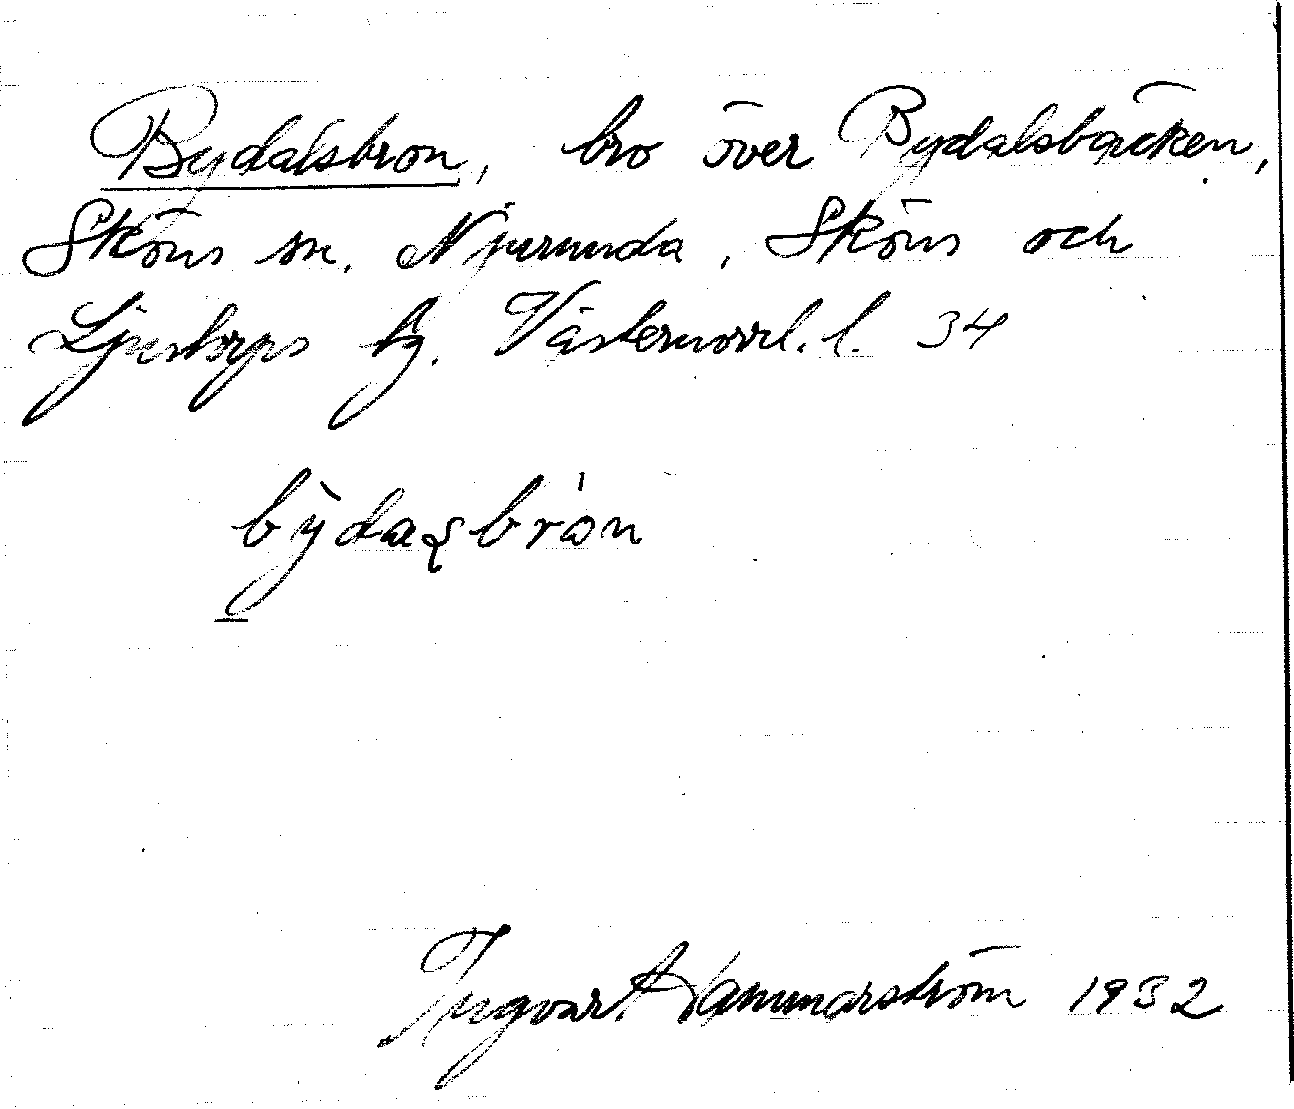 Bydalsbron, bro över Bydalsbäcken,
Sköns sn. Njurunda, Sköns och
Ljustorps tg. Västernorrl. l. 34
bỳdaʂbrón
Ingvar Hammarström 1932